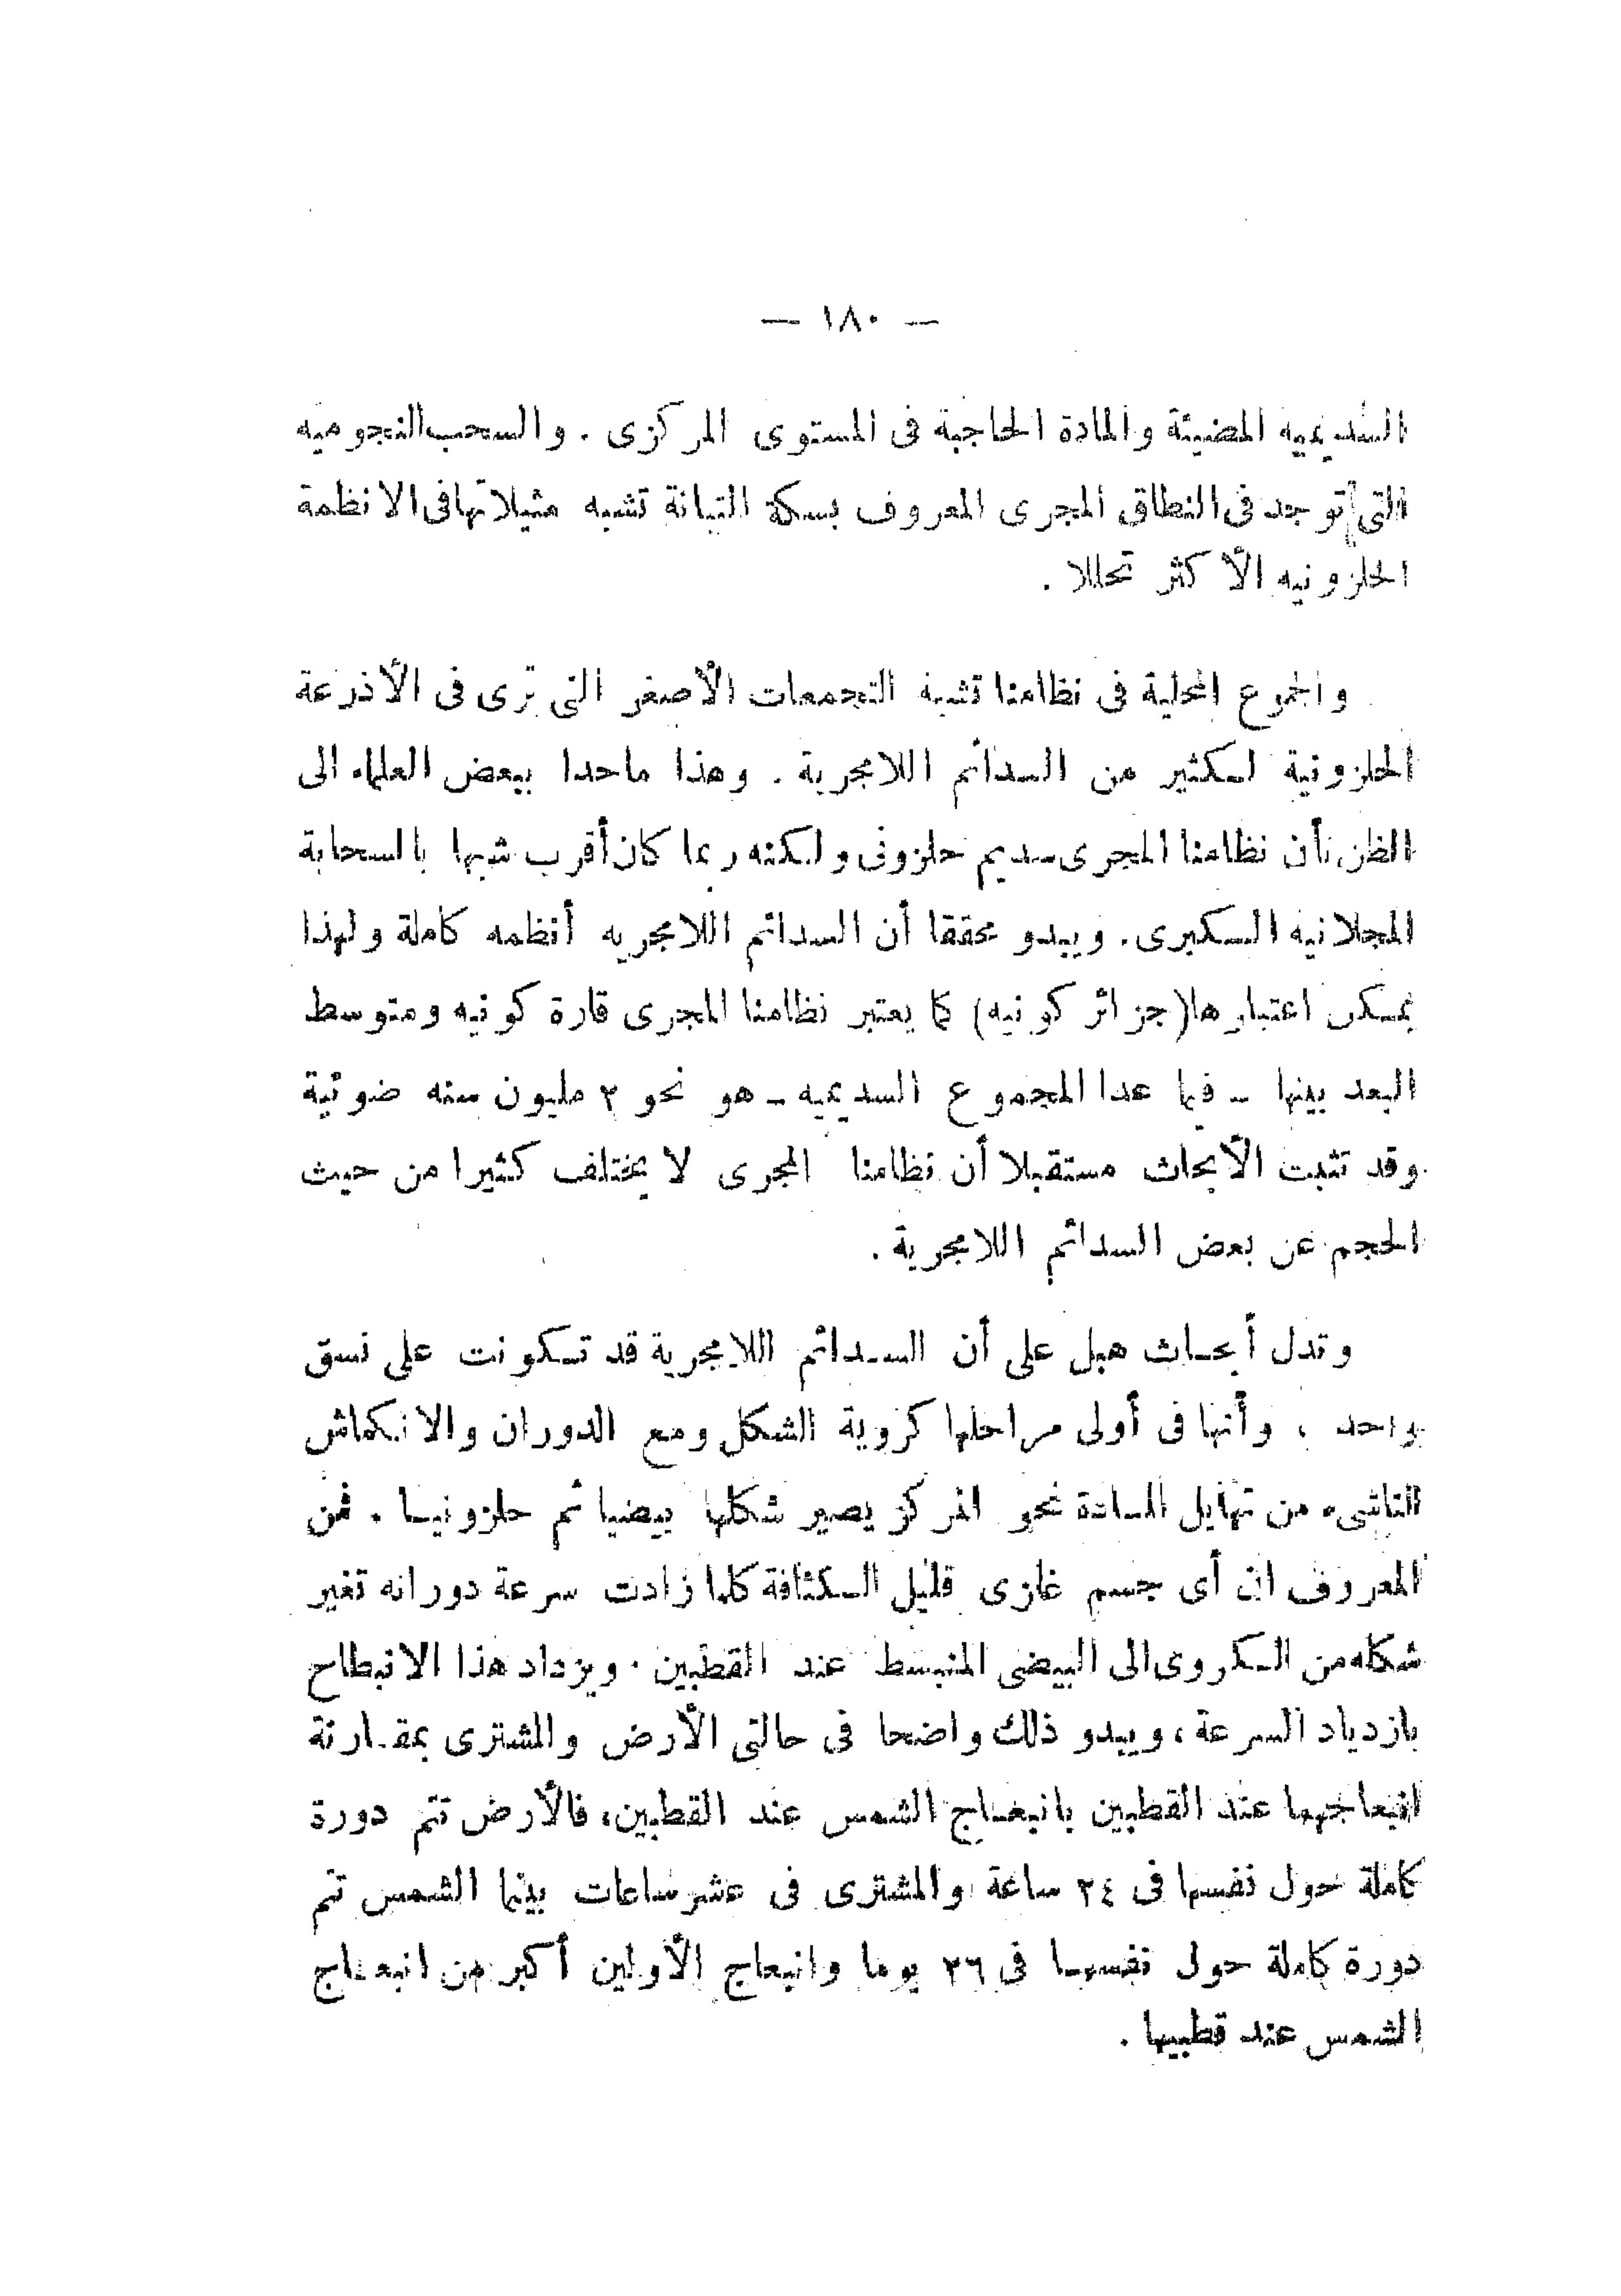 — ١٨٠ —
السديميه المضيئة والمادة الحاجبة فى المستوى المركزى . والسحب النجوميه
التى توجد فى النطاق المجرى المعروف بسكة التبانة تشبه مثيلاتها فى الانظمة
الحلزونيه الأكثر تحللا .
والجموع المحلية فى نظامنا تشبه التجمعات الأصغر التى ترى فى الأذرعة
الحلزونية لكثير من السدائم اللامجرية . وهذا ماحدا ببعض العلماء الى
الظن بأن نظامنا المجرى سديم حلزونى ولكنه ربما كان أقرب شبها بالسحابة
المجلانيه الكبرى . ويبدو محققا أن السدائم اللامجريه أنظمه كاملة ولهذا
يمكن اعتبارها (جزائر كونيه) كما يعتبر نظامنا المجرى قارة كونيه ومتوسط
البعد بينها – فيما عدا المجموع السديميه – هو نحو ٢ مليون سنه ضوئية
وقد تثبت الأبحاث مستقبلا أن نظامنا المجرى لا يختلف كثيرا من حيث
الحجم عن بعض السدائم اللامجرية .
وتدل أبحاث هبل على أن السدائم اللامجرية قد تكونت على نسق
واحد ، وأنها فى أولى مراحلها كروية الشكل ومع الدوران والانكماش
الناشىء من تهايل المادة نحو المركز يصير شكلها بيضيا ثم حلزونيا . فمن
المعروف ان أى جسم غازى قليل الكثافة كلما زادت سرعة دورانه تغير
شكله من الكروى الى البيضى المنبسط عند القطبين . ويزداد هذا الانبطاح
بازدياد السرعة ، ويبدو ذلك واضحا فى حالتى الأرض والمشترى بمقارنة
انبعاجهما عند القطبين بانبعاج الشمس عند القطبين ، فالأرض تتم دورة
كاملة حول نفسها فى ٢٤ ساعة والمشترى فى عشر ساعات بينما الشمس تتم
دورة كاملة حول نفسها فى ٢٦ يوما وانبعاج الأولين أكبر من انبعاج
الشمس عند قطبيها .